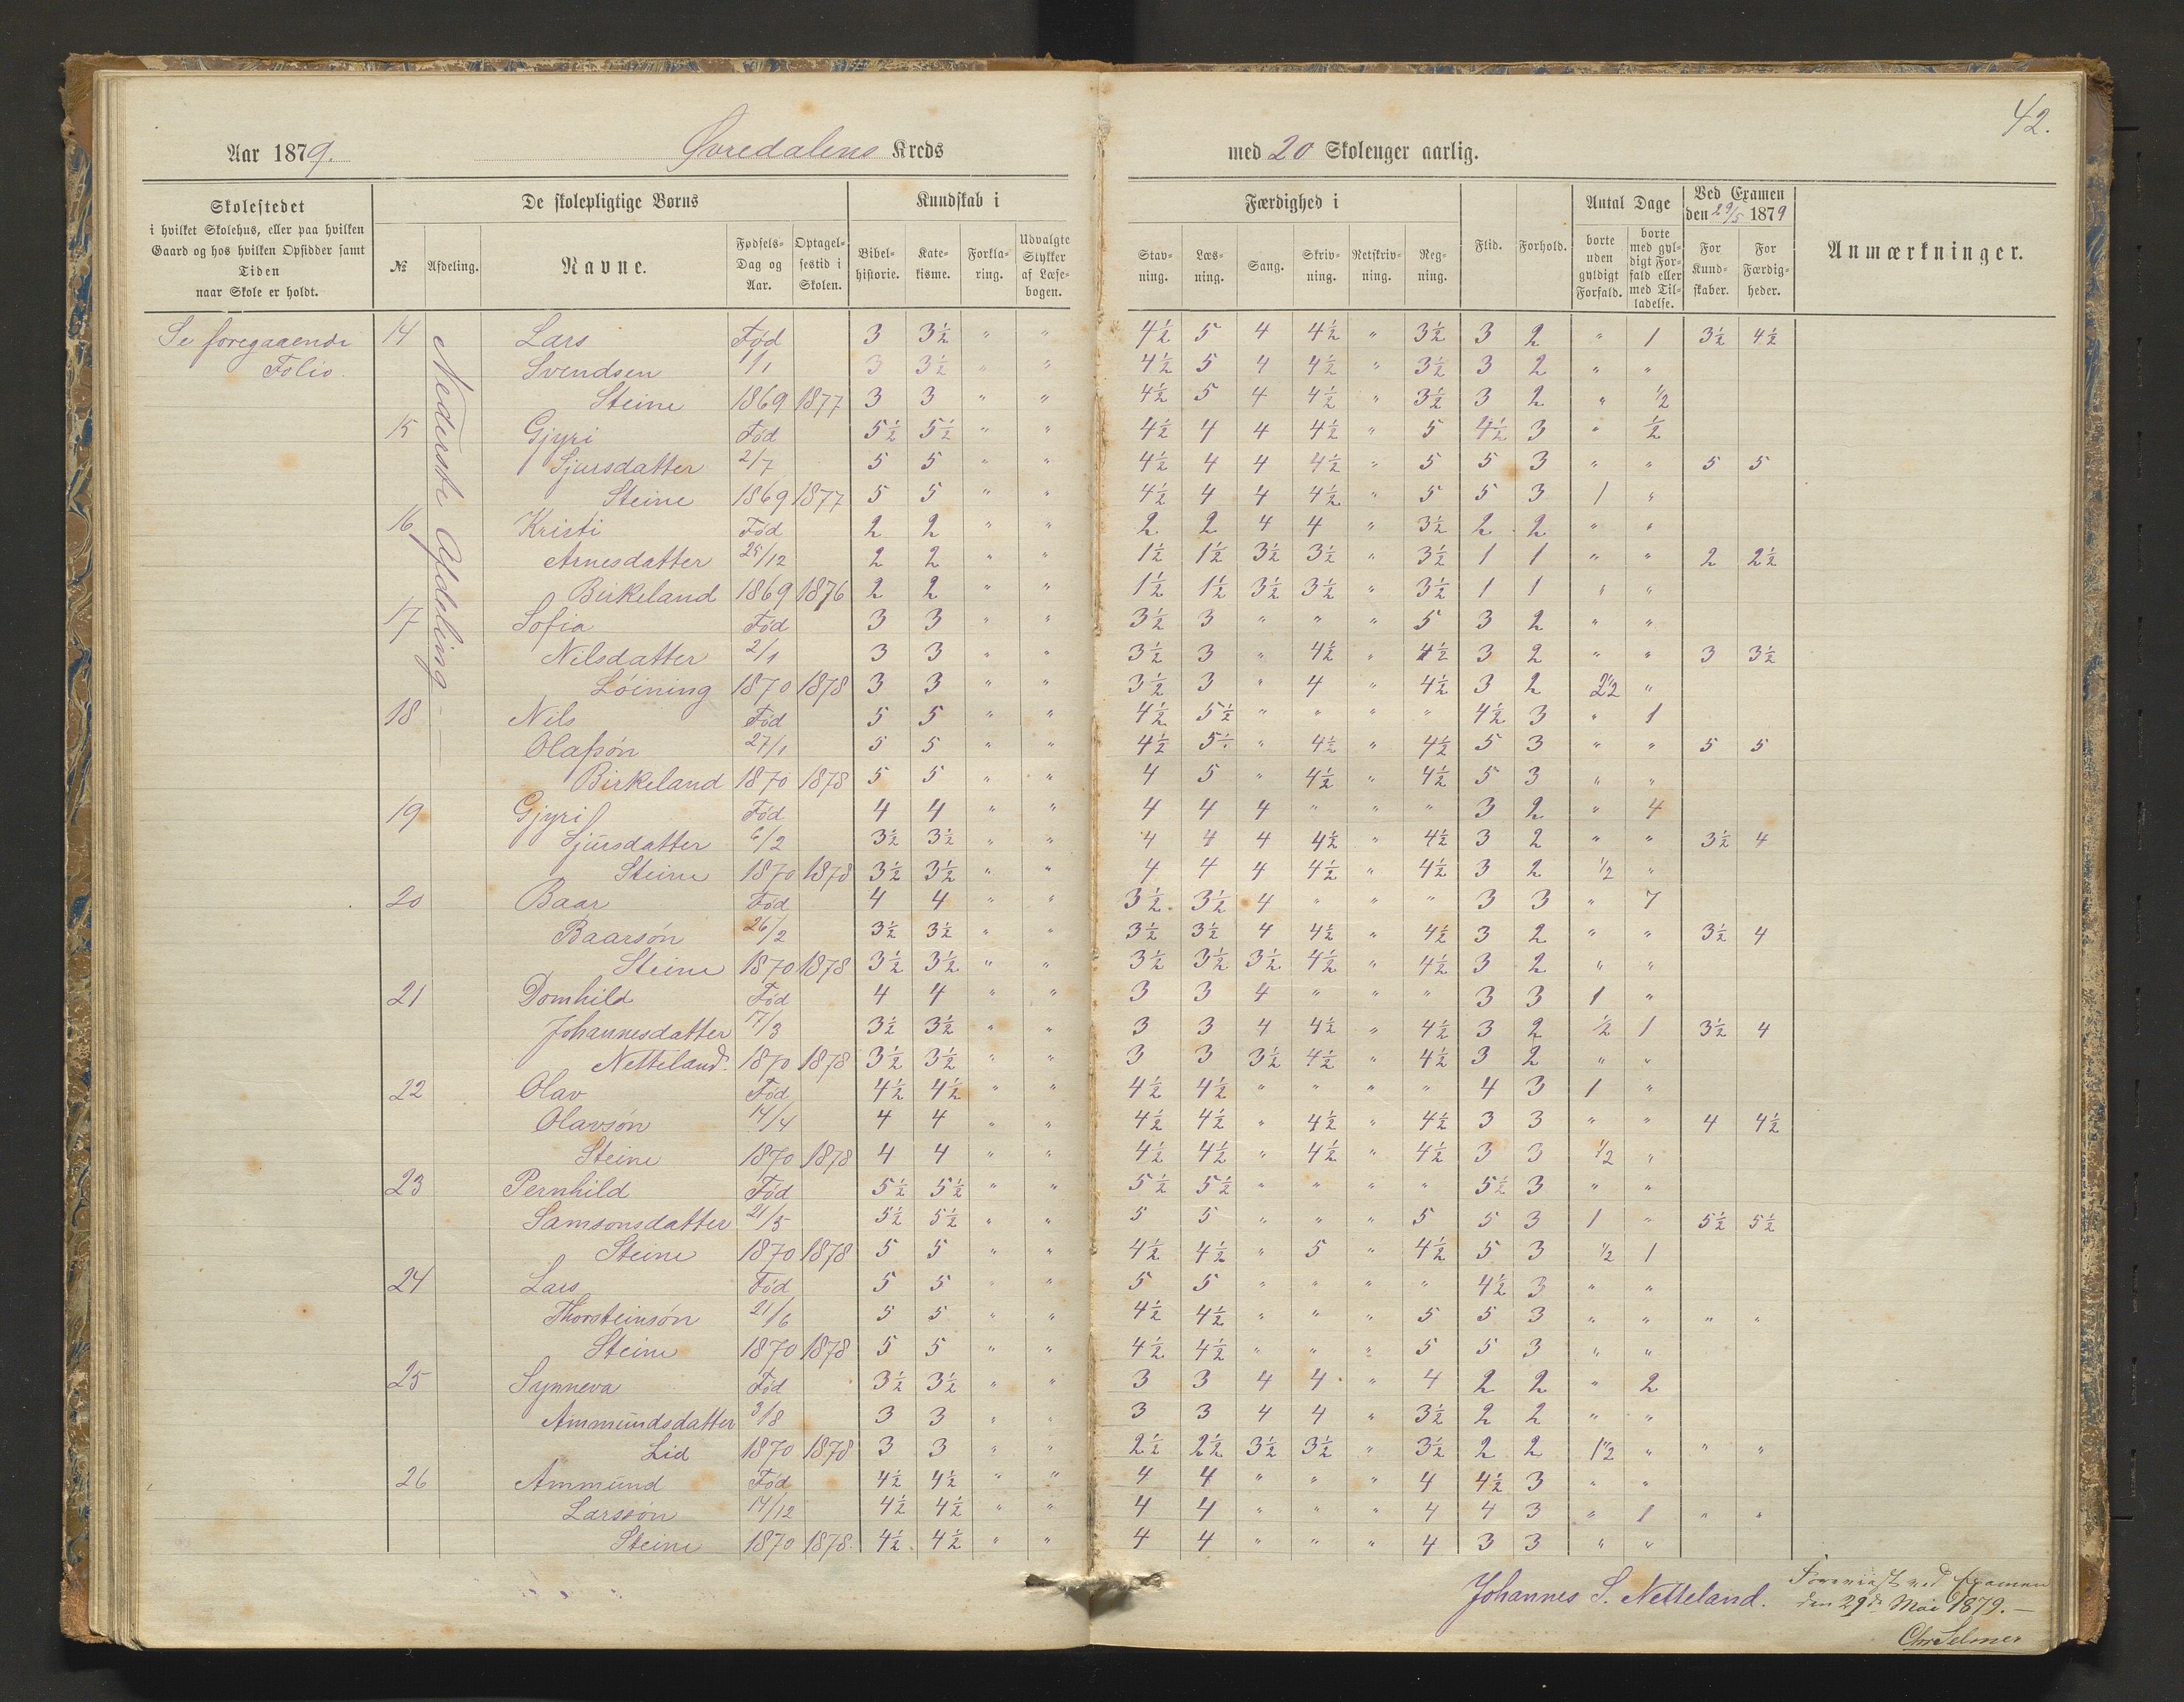 42.
Aar 1879. Øvredalens Kreds med 20 Skoleuger aarlig.
Skolestedet i hvilket Skolehus, eller paa hvilken Gaard og hos hvilken Opsidder samt Tiden naar Skole er holdt.
De skolepligtige Børns
№ Afdeling. Navne. Fødsels-Dag og Aar. Optagel-sestid i Skolen.
Kundskab i
Bibel-historie. Kate-kisme. Forkla-ring. Udvalgte Stykker af Læse-bogen.
Færdighed i
Stav-ning. Læs-ning. Sang. Skriv-ning. Retskriv-ning. Reg-ning.
Flid. Forhold.
Antal Dage
borte uden gyldigt Forfald. borte med gyl-digt For-fald eller med Til-ladelse.
Ved Examen den 29/5 1879
For Kund-skaber. For Færdig-heder.
Anmærkninger.
Se foregaaende Folio.
Nederste Afdeling
14 Lars Fød 3 3½ " " 4½ 5 4 4½ " 3½ 3 2 " 1 3½ 4½
Svendsen 1/1 3 3½ " " 4½ 5 4 4½ " 3½ 3 2 " "
Steine 1869 1877 3 3 " " 4½ 5 4 4½ " 3½ 3 2 " ½
15 Gjyri Fød 5½ 5½ " " 4½ 4 4 4½ " 5 4½ 3 " ½
Sjursdatter 2/7 5 5 " " 4½ 4 4 4½ " 5 5 3 " " 5 5
Steine 1869 1877 5 5 " " 4½ 4 4 4½ " 5 5 3 1 "
16 Kristi Fød 2 2 " " 2 2 4 4 " 3½ 2 2 " "
Arnesdatter 25/12 2 2 " " 1½ 1½ 3½ 3½ " 3½ 1 1 " " 2 2½
Birkeland 1869 1876 2 2 " " 1½ 1½ 3½ 3½ " 3½ 1 1 " "
17 Sofia Fød 3 3 " " 3½ 3 " " " 5 3 2 " "
Nilsdatter 2/1 3 3 " " 3½ 3 " 4½ " 4½ 3 2 " " 3 3½
Løining 1870 1878 3 3 " " 3½ 3 " 4 " 4½ 3 2 2½ "
18 Nils Fød 5 5 " " 4½ 5½ " " " " 4½ 3 " 1
Olafsøn 27/1 5 5 " " 4½ 5½ " 4½ " 4½ 5 3 " " 5 5
Birkeland 1870 1878 5 5 " " 4 5 " 4½ " 4½ 5 3 " "
19 Gjyri Fød 4 4 " " 4 4 4 " " " 3 2 " 4
Sjursdatter 6/2 3½ 3½ " " 4 4 4 4½ " 4½ 3 2 " " 3½ 4
Steine 1870 1878 3½ 3½ " " 4 4 4 4½ " 4½ 3 2 ½ "
20 Baar Fød 4 4 " " 3½ 3½ 4 " " " 3 3 " 7
Baarsøn 26/2 3½ 3½ " " 3½ 3½ 4 4½ " 4½ 3 2 " " 3½ 4
Steine 1870 1878 3½ 3½ " " 3½ 3½ 3½ 4½ " 4½ 3 2 " "
21 Domhild Fød 4 4 " " 3 3 4 " " " 3 3 1 "
Johannesdatter 17/3 3½ 3½ " " 3 3 4 4½ " 4½ 3 2 ½ 1 3½ 4
Netteland. 1870 1878 3½ 3½ " " 3 3 3½ 4½ " 4½ 3 2 " "
22 Olav Fød 4½ 4½ " " 4½ 4½ " " " " 4 3 1 "
Olavsøn 14/4 4 4 " " 4½ 4½ " 4½ " 4½ 3 3 " " 4 4½
Steine 1870 1878 4 4 " " 4½ 4½ " 4½ " 4½ 3 3 ½ "
23 Pernhild Fød 5½ 5½ " " 5½ 5½ " " " " 5½ 3 " "
Samsonsdatter 21/5 5½ 5½ " " 5 5 " " " 5 5 3 1 " 5½ 5½
Steine 1870 1878 5 5 " " 4½ 4½ " 5 " 4½ 5 3 ½ 1
24 Lars Fød 5 5 " " 5 5 " " " " 4½ 3 " "
Thorsteinsøn 21/6 5 5 " " 4½ 4½ " " " 5 5 3 " " " "
Steine 1870 1878 5 5 " " 4½ 4½ " " " 5 5 3 " "
25 Synneva Fød 3½ 3½ " " 3 3 4 4 " 4 2 2 " 2
Ammundsdatter 3/8 3 3 " " 3 3 4 4 " 3½ 2 2 " "
Lid 1870 1878 3 3 " " 2½ 2½ 3½ 3½ " 3½ 2 2 1½ " " "
26 Ammund Fød 4½ 4½ " " 4 4 " " " 4 4½ 3 " "
Larssøn 14/12 4½ 4½ " " 4 4 " " " 4 4 3 " 1 " "
Steine 1870 1878. 4½ 4½ " " 4 4 " " " 4 3 3 " "
Johannes S. Netteland.
Foreviist ved Examen
den 29de Mai 1879.—
Chr Selmer